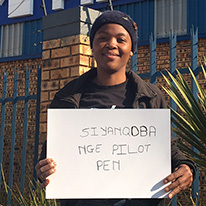 SIYANQOBA
NGE PILOT
PEN